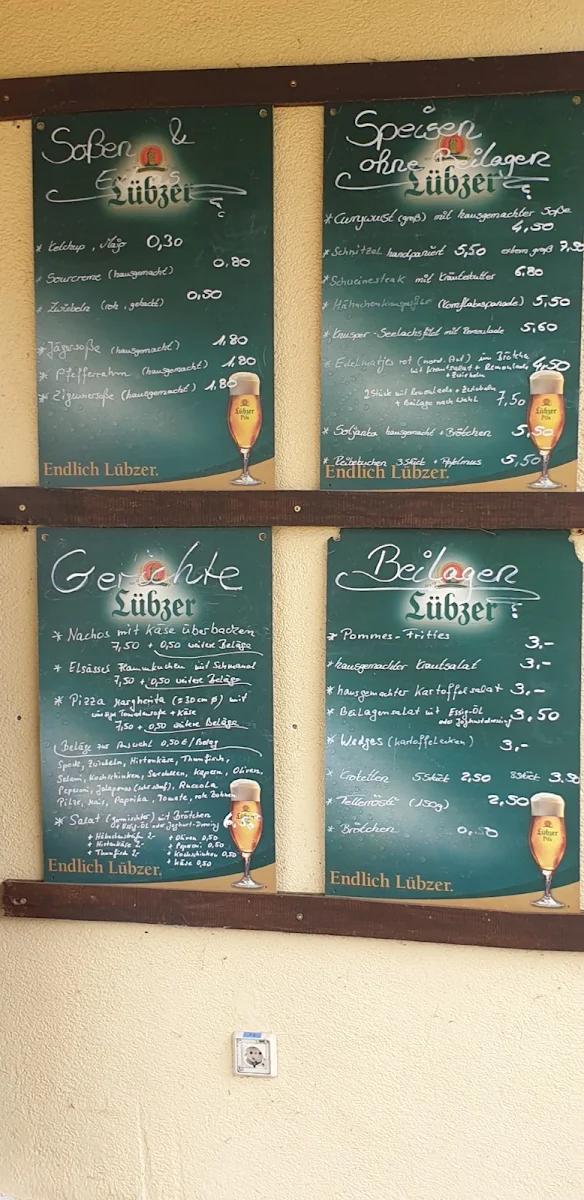 Soßen &
Extras
Lübzer
* Ketchup, Majo 0,30
* Sourcreme (hausgemacht) 0,80
* Zwiebeln (roh, gehackt) 0,50
* Jägersoße (hausgemacht) 1,80
* Pfefferrahm (hausgemacht) 1,80
* Zigeunersoße (hausgemacht) 1,80
Lübzer
Pils
Endlich Lübzer.
Speisen
ohne Beilagen
Lübzer
* Currywurst (groß) mit hausgemachter Soße
4,50
* Schnitzel handpaniert 5,50 extrem groß 7,50
* Schweinesteak mit Kräuterbutter 6,80
* Hähnchenknusperfilet (Kornflakspanade) 5,50
* Knusper-Seelachsfilet mit Remoulade 5,60
* Edelmatjes rot (nord. Art) im Brötchen 4,50
mit Krautsalat + Remoulade
+ Zwiebeln
2 Stück mit Remoulade + Zwiebeln
+ Beilage nach Wahl 7,50
* Soljanka hausgemacht + Brötchen 5,50
* Reibekuchen 3 Stück + Apfelmus 5,50
Lübzer
Pils
Endlich Lübzer.
Gerichte
Lübzer
* Nachos mit Käse überbacken
7,50 + 0,50 weitere Beläge
* Elsässer Flammkuchen mit Schmand
7,50 + 0,50 weitere Beläge
* Pizza Margherita (≈30cm ø) mit
würziger Tomatensoße + Käse
7,50 + 0,50 weitere Beläge
Beläge zur Auswahl 0,50 €/Belag
Speck, Zwiebeln, Hirtenkäse, Thunfisch,
Salami, Kochschinken, Sardellen, Kapern, Oliven,
Peperoni, Jalapenos (sehr scharf), Ruccola
Pilze, Mais, Paprika, Tomate, rote Bohnen
* Salat (gemischter) mit Brötchen
+ Essig-Öl oder Joghurt-Dressing 6,50
+ Hähnchenstreifen 2,- + Oliven 0,50
+ Hirtenkäse 2,- + Peperoni 0,50
+ Thunfisch 2,- + Kochschinken 0,50
+ Käse 0,50
Lübzer
Pils
Endlich Lübzer.
Beilagen
Lübzer
* Pommes-Frittes 3,-
* hausgemachter Krautsalat 3,-
* hausgemachter Kartoffelsalat 3,-
* Beilagensalat mit Essig-Öl
oder Joghurtdressing 3,50
* Wedges (Kartoffelecken) 3,-
* Kroketten 5 Stück 2,50 8 Stück 3,50
* Tellerrösti (150g) 2,50
* Brötchen 0,50
Lübzer
Pils
Endlich Lübzer.